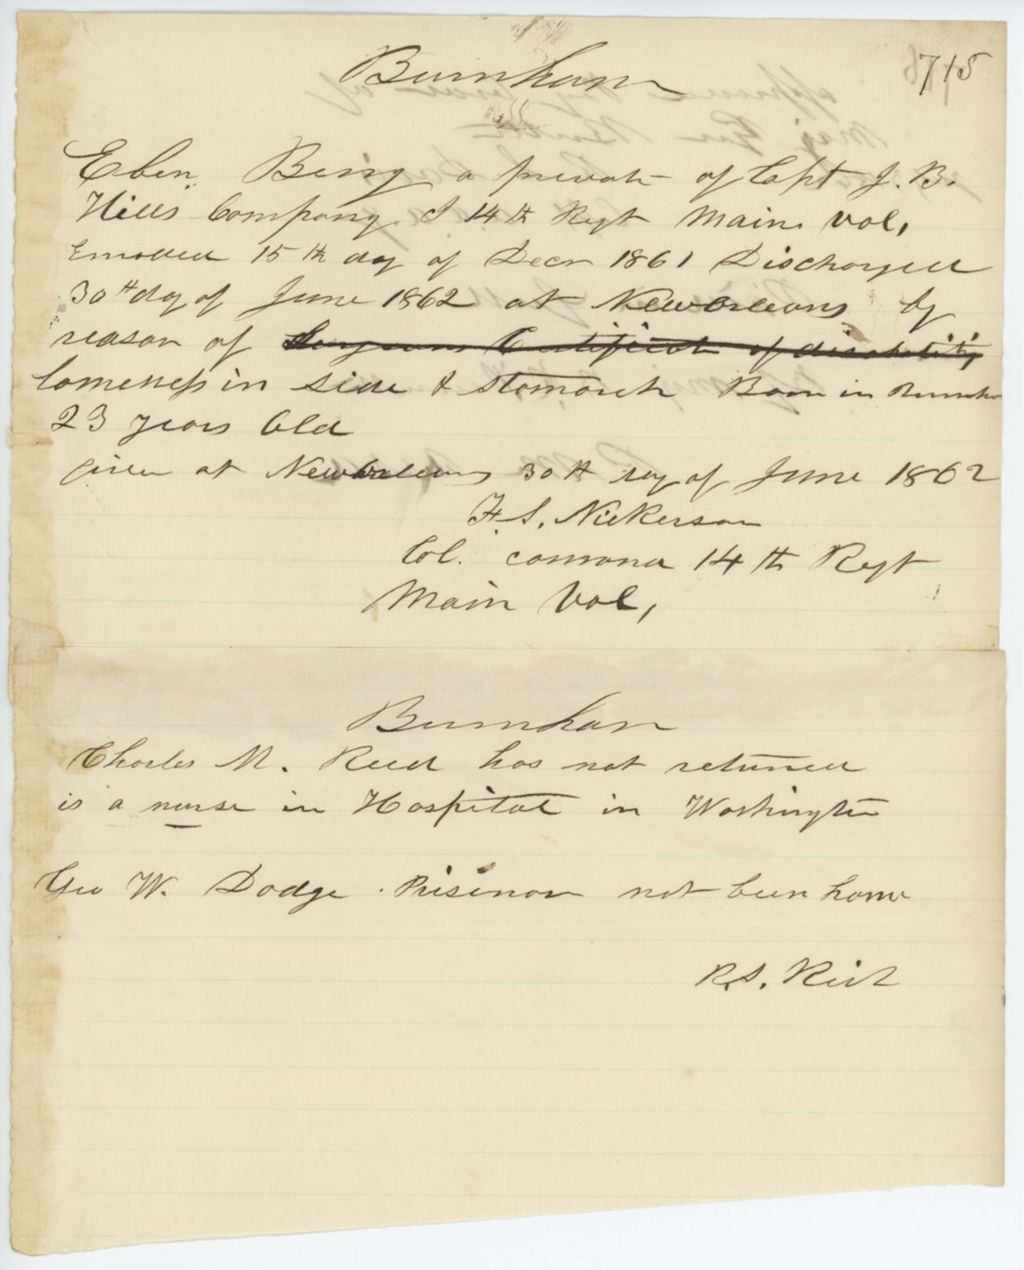 Burnham
715
Eben Berry a private of Capt J. B.
Hills Company I 14th Regt Main Vol,
Enrolled 15th day of Decr 1861 Discharged
30th dy of June 1862 at New Orleans by
reason of Surgeons Certificate of disability,
lameness in side & stomach Born in
23 years Old
given at New Orleans 30th day of June 1862
F. S. Nickerson
Col. comond 14th Regt
Main Vol,
Burnham
Charles M. Reed has not returned
is a nurse in Hospital in Washington
Geo W. Dodge. Prisenor not been home
R. S. Rich